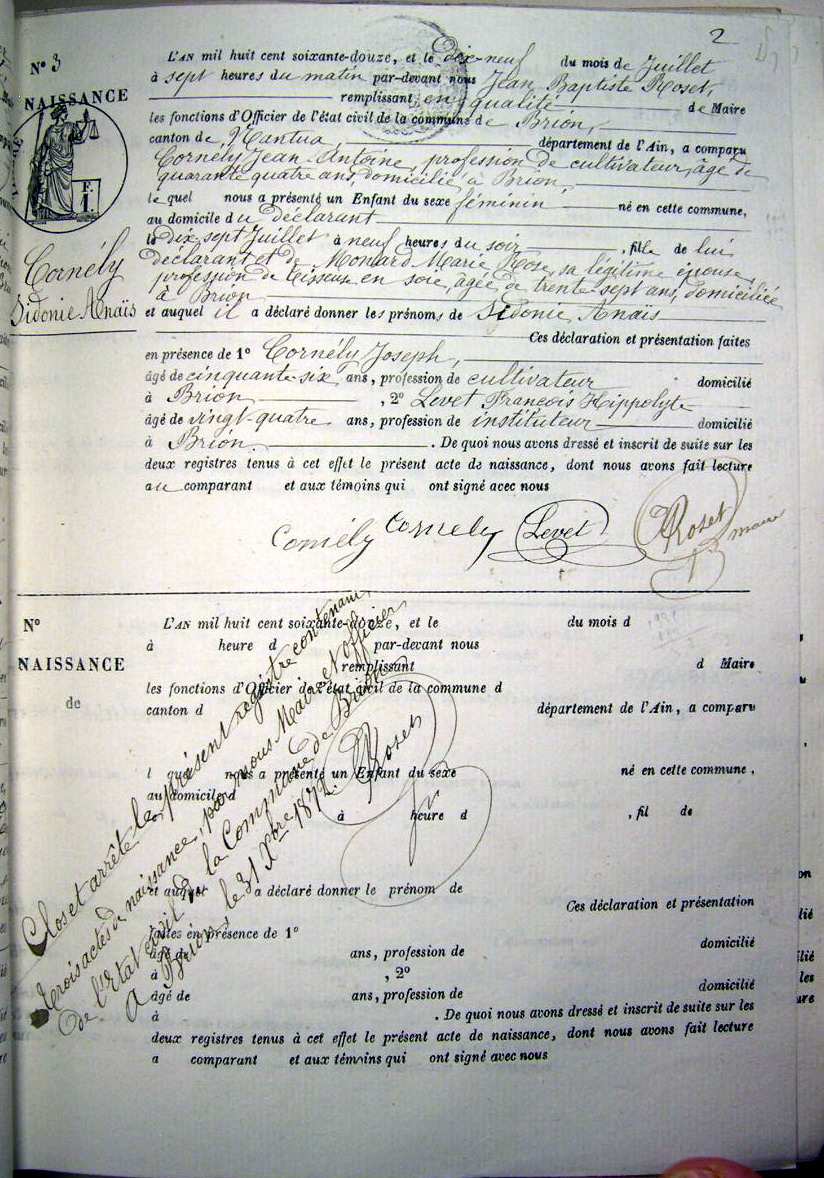 2
N° 3
NAISSANCE
Cornély
Sidonie Anaïs
L'AN mil huit cent soixante-douze, et le dix-neuf du mois de Juillet
à sept heures du matin par-devant nous Jean Baptiste Roset,
remplissant en qualité de Maire
les fonctions d'Officier de l'état civil de la commune de Brion,
canton de Nantua, département de l'Ain, a comparu
Cornély Jean Antoine, profession de cultivateur, âgé de
quarante quatre ans, domicilié à Brion,
le quel nous a présenté un Enfant du sexe féminin né en cette commune,
au domicile du déclarant
le dix sept Juillet à neuf heures du soir , fille de lui
déclarant et de Monard Marie Rose, sa légitime épouse,
profession de tisseuse en soie, âgée de trente-sept ans, domiciliée
à Brion
et auquel il a déclaré donner les prénoms de Sidonie Anaïs
Ces déclaration et présentation faites
en présence de 1° Cornély Joseph,
âgé de cinquante-six ans, profession de cultivateur domicilié
à Brion , 2° Levet François Hippolyte
âgé de vingt-quatre ans, profession de instituteur domicilié
à Brion. . De quoi nous avons dressé et inscrit de suite sur les
deux registres tenus à cet effet le présent acte de naissance, dont nous avons fait lecture
au comparant et aux témoins qui ont signé avec nous
Cornély Cornely Levet Roset maire
N°
NAISSANCE
de
L'AN mil huit cent soixante-douze, et le du mois d
à heure d par-devant nous
remplissant d Maire
les fonctions d'Officier de l'état civil de la commune d
canton d département de l'Ain, a comparu
l quel nous a présenté un Enfant du sexe né en cette commune,
au domicile d
à heure d , fil de
et auquel a déclaré donner le prénom de
Ces déclaration et présentation
faites en présence de 1°
âgé de ans, profession de domicilié
à , 2°
âgé de ans, profession de domicilié
à . De quoi nous avons dressé et inscrit de suite sur les
deux registres tenus à cet effet le présent acte de naissance, dont nous avons fait lecture
a comparant et aux témoins qui ont signé avec nous
Clos et arrêté le présent registre contenant
trois actes de naissance, par nous Maire et officier
de l'état civil de la Commune de Brion
A Brion, le 31 Xbre 1872. Roset